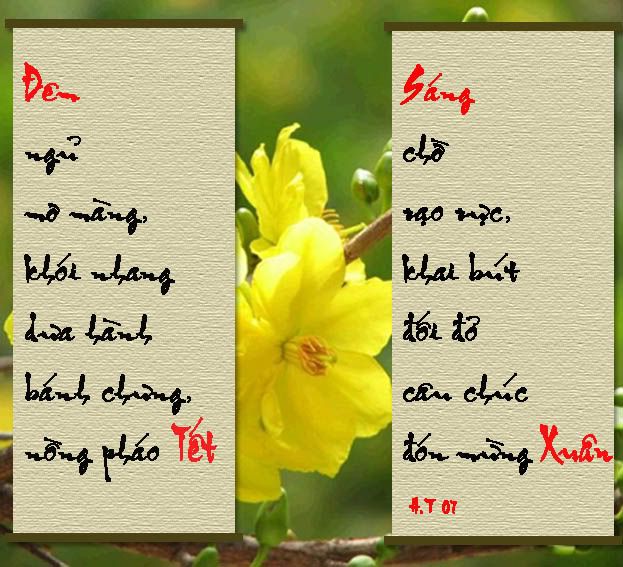 Đêm
ngủ
mơ màng,
khói nhang
dưa hành
bánh chưng,
nồng pháo Tết
Sáng
chờ
rạo rực,
khai bút
đối đỏ
câu chúc
đón mừng Xuân
A.T 07